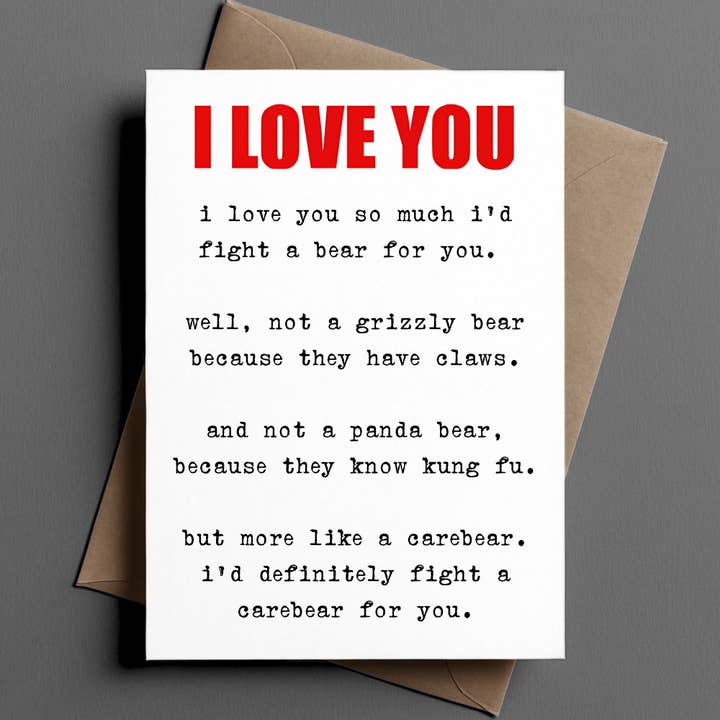 I LOVE YOU
i love you so much i'd
fight a bear for you.
well, not a grizzly bear
because they have claws.
and not a panda bear,
because they know kung fu.
but more like a carebear.
i'd definitely fight a
carebear for you.